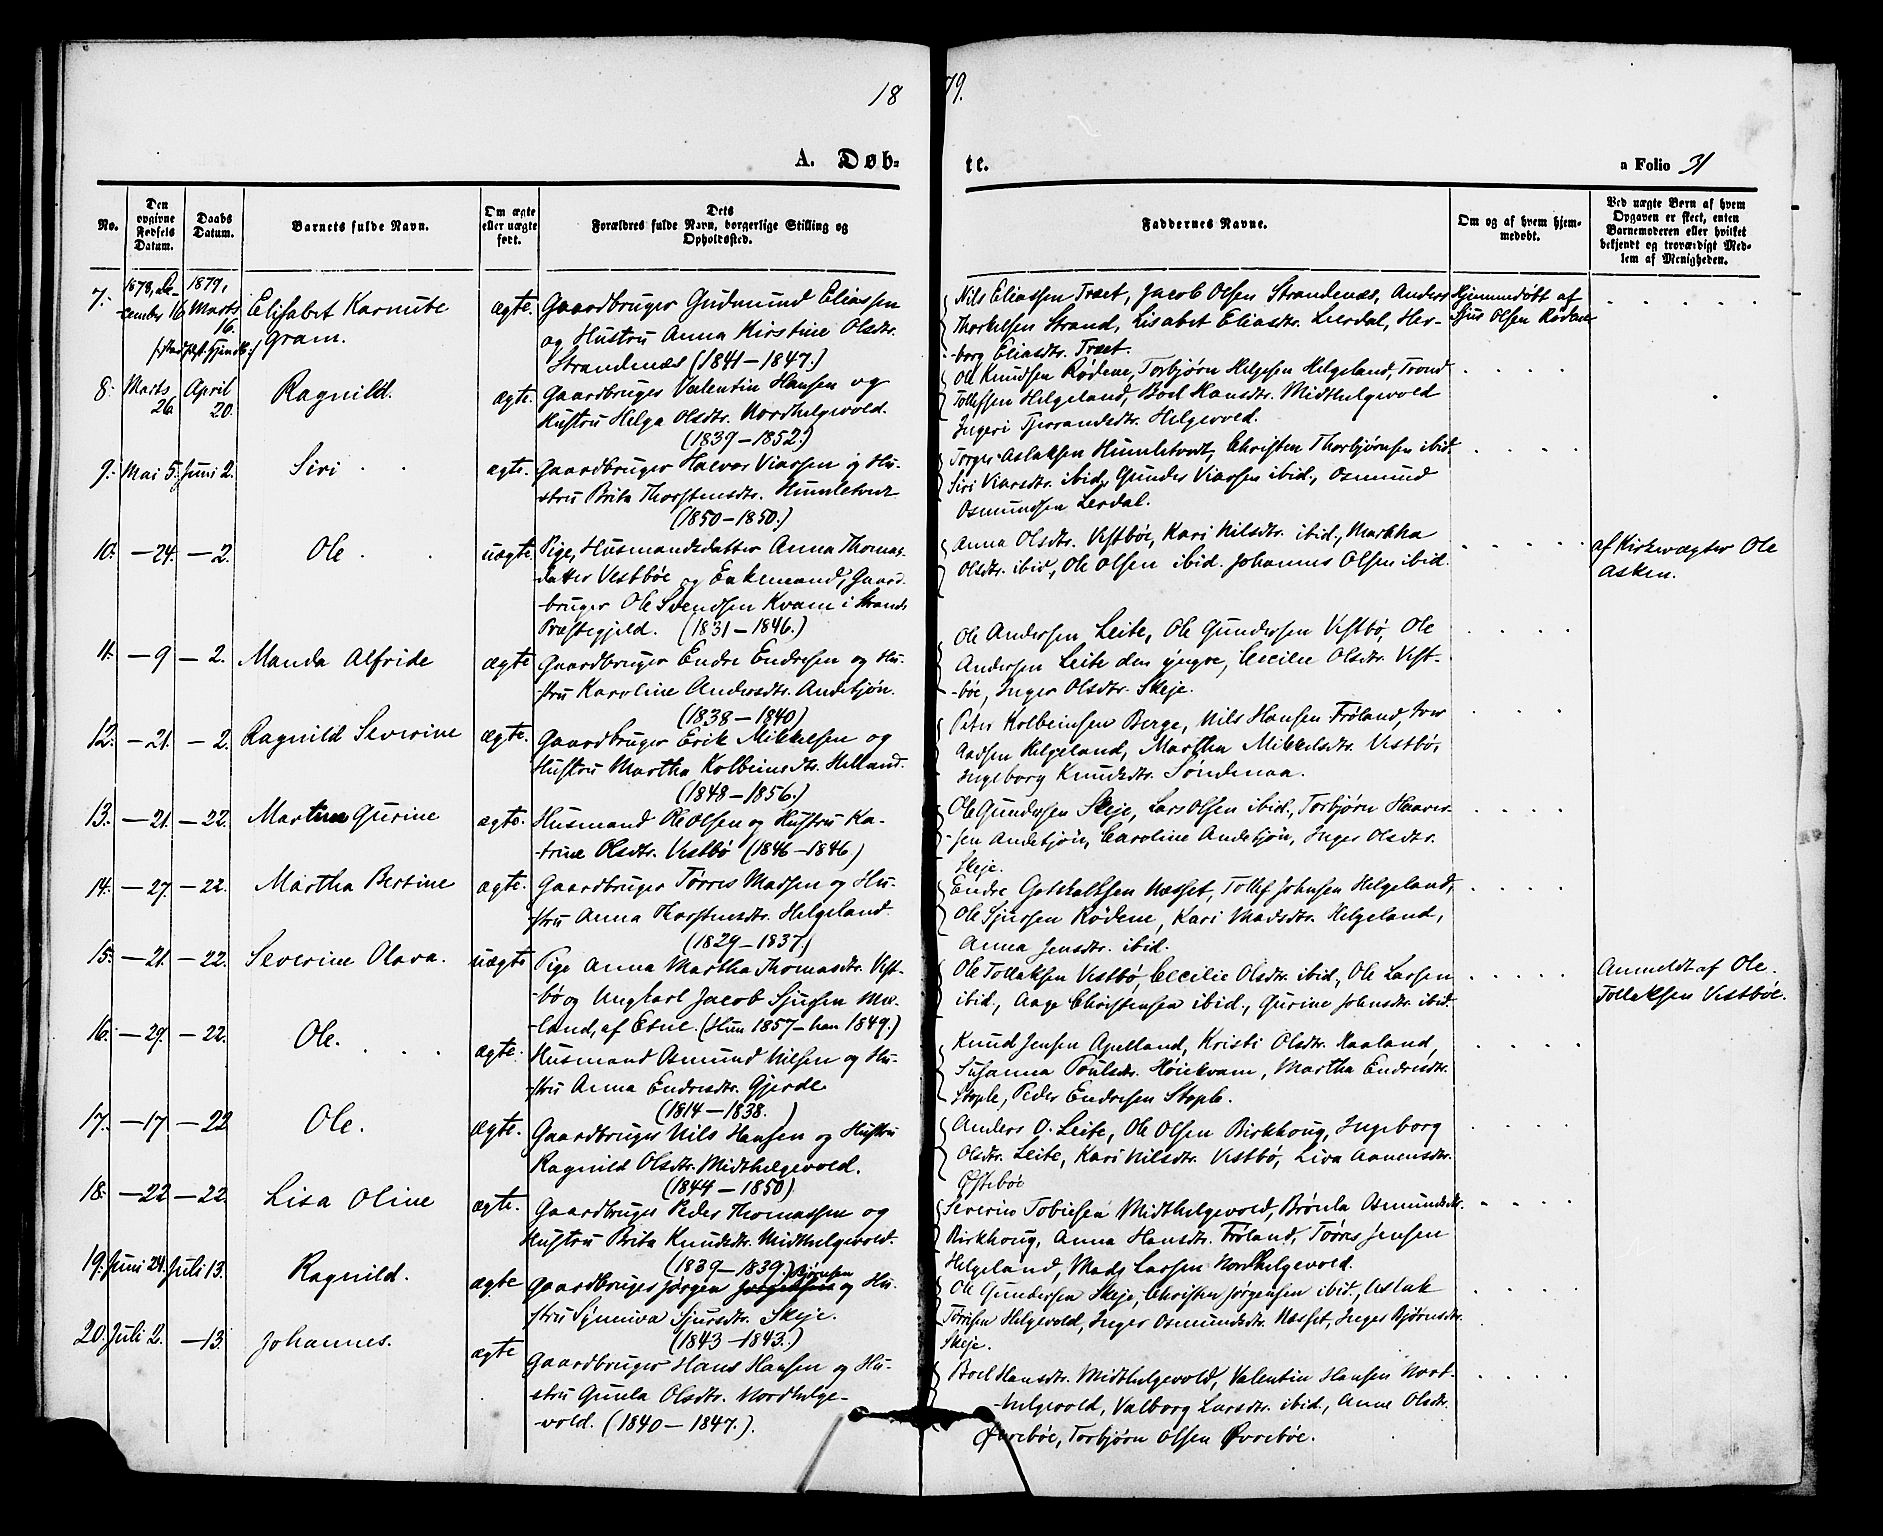 1879.
A. Døbte.
a Folio 31
No.
Den opgivne Fødsels Datum.
Daabs Datum.
Barnets fulde Navn.
Om ægte eller uægte født.
Dets Forældres fulde Navn, borgerlige Stilling og Opholdssted.
Faddernes Navne.
Om og af hvem hjemmedøbt.
Ved uægte Børn af hvem Opgaven er skeet, enten Barnemoderen eller hvilket bekjendt og troværdigt Medlem af Menigheden.
7. 1878, December 16. 1879, Marts 16. Elisabet Karnube Gram. ægte. Gaardbruger Gudmund Eliassen
og Hustru Anna Kirstine Olsdtr.
Strandenæs (1841-1847.)
Nils Eliassen Træet, Jacob Olsen Strandenæs, Anders
Thorkelsen Strand, Lisabet Eliasdtr. Leerdal, Her-
-borg Eliasdtr. Træet.
Hjemmedøbt af
Sjur Olsen Rødene
8. Marts 26. April 20. Ragnild. ægte. Gaardbruger Valentin Hansen og
Hustru Helga Olsdtr. Nordhelgevold.
(1839-1852.)
Ole Knudsen Rødene, Torbjørn Helgesen Helgeland, Trond
Tollefsen Helgeland, Boel Hansdtr. Midthelgevold
Ingeri Tjerandsdtr. Helgevold.
9. Mai 5. Juni 2. Siri ægte. Gaardbruger Halvor Viarsen og Hu-
stru Brita Thorstensdtr. Humletvedt
(1850-1850.)
Torger Aslaksen Humletvedt, Christen Thorbjørnsen ibid.
Siri Viarsdtr. ibid, Gunder Viarsen ibid., Osmund
Osmundsen Lerdal.
10. -24. -2. Ole uægte. Pige, Husmandsdatter Anna Thomas-
datter Vestbøe og Enkemand, Gaard-
-bruger Ole Svendsen Kvam i Strands
Præstegjeld. (1831-1846.)
Anna Olsdtr. Vestbøe, Kari Nilsdtr. ibid., Martha
Olsdtr. ibid, Ole Olsen ibid. Johannes Olsen ibid.
af Kirkeværger Ole
Asken.
11. -9 -2. Manda Alfride ægte Gaardbruger Endre Endresen og Hu-
stru Karoline Andersdtr. Andetjøn.
(1838-1840)
Ole Andersen Leite, Ole Gundersen Vestbø, Ole
Andersen Leite den yngre, Cecilie Olsdtr. Vest-
-bøe, Inger Olsdtr. Skeje.
12. -21. -2. Ragnild Severine ægte. Gaardbruger Erik Mikkelsen og
Hustru Martha Kolbeinsdtr. Helland.
(1848-1856.)
Peter Kolbeinsen Berge, Nils Hansen Frøland, Iver
Aadsen Helgeland, Martha Mikkelsdtr. Vestbø,
Ingeborg Knudsdtr. Søndenaa.
13. -21. -22. Martine Gurine ægte. Husmand Ole Olsen og Hustru Ka-
-trine Olsdtr. Vestbø (1846-1846)
Ole Gundersen Skeje, Lars Olsen ibid., Torbjørn Haaver-
sen Andetjøn, Caroline Andetjøn, Inger Olsdtr.
Skeje.
14. -27. -22. Martha Bertine ægte. Gaardbruger Tørres Madsen og Hu-
stru Anna Thorstensdtr. Helgeland.
(1829-1837.)
Endre Gotskalksen Næsset, Tollef Johnsen Helgeland,
Ole Sjursen Rødene, Kari Madsdtr. Helgeland,
Anna Jensdtr. ibid.
15. -21. -22. Severine Olava. uægte Pige Anna Martha Thomasdtr. Vest-
-bø og Ungkarl Jacob Sjursen Mæ-
-land, af Etne. (Hun 1857-han 1849.)
Ole Tollaksen Vestbø, Cecilie Olsdtr. ibid., Ole Larsen
ibid., Aage Christensen ibid., Gurine Johnsdtr. ibid.
Anmeldt af Ole
Tollaksen Vestbøe.
16. -29. -22. Ole. ægte. Husmand Osmund Nilsen og Hu-
stru Anna Endresdtr. Gjerde
(1814-1838.)
Knud Jensen Apelland, Kristi Olsdtr. Raaland,
Susanna Poulsdtr. Høiekvam, Martha Endresdtr.
Stople, Peder Endresen Stople.
17. -17. -22 Ole. ægte. Gaardbruger Nils Hansen og Hustru
Ragnild Olsdtr. Midthelgevold.
(1844-1850)
Anders O. Leite, Ole Olsen Birkhoug, Ingeborg
Olsdtr. Leite, Kari Nilsdtr. Vestbø, Liva Aanensdtr.
Østebøe
18. -22 -22. Lisa Oline ægte. Gaardbruger Peder Thomassen og
Hustru Brita Knudsdtr. Midthelgevold.
(1839-1839.)
Severin Tobiesen Midthelgevold, Brønla Osmundsdtr.
Birkhoug, Anna Hansdtr. Frøland, Tørres Jensen
Helgeland, Mads Larsen Nordhelgevold.
19. Juni 24. Juli 13. Ragnild. ægte Gaardbruger Jørgen Bjørnsen og Hu-
stru Synniva Sjursdtr. Skeje.
(1843-1843.)
Ole Gundersen Skeje, Christen Jørgensen ibid., Aslak
Tørrisen Helgevold, Inger Osmundsdtr. Næsset, Inger Bjørnsdtr.
Skeje.
20. Juli 2. -13. Johannes. ægte Gaardbruger Hans Hansen og Hu-
stru Gunla Olsdtr. Nordhelge-
-vold. (1840-1847.)
Boel Hansdtr. Midthelgevold, Valentin Hansen Nord-
-helgevold, Valborg Larsdtr. ibid., Anne Olsdtr.
Øvrebøe, Torbjørn Olsen Øvrebøe.